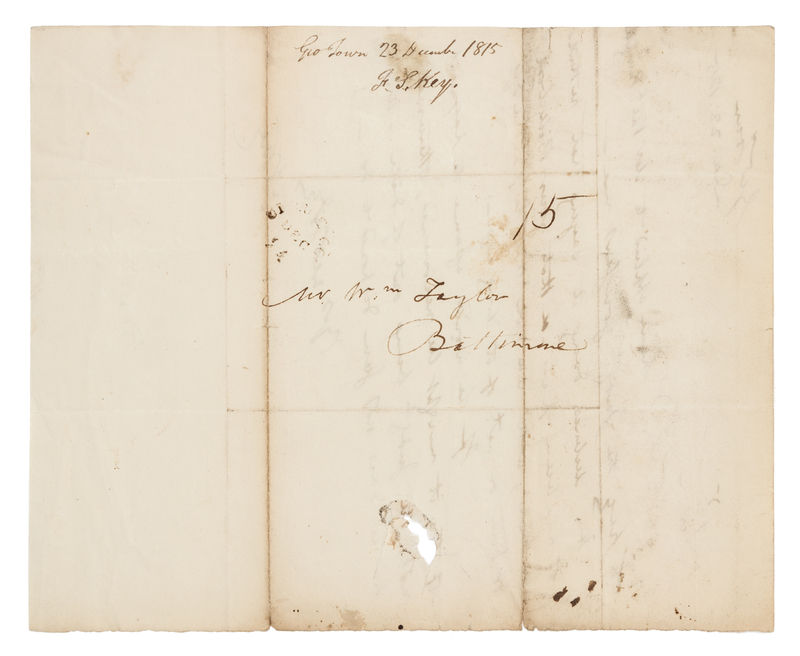 Geo Town 23 Decembr 1815
F. S. Key.
15
Mr. Wm Taylor
Baltimore